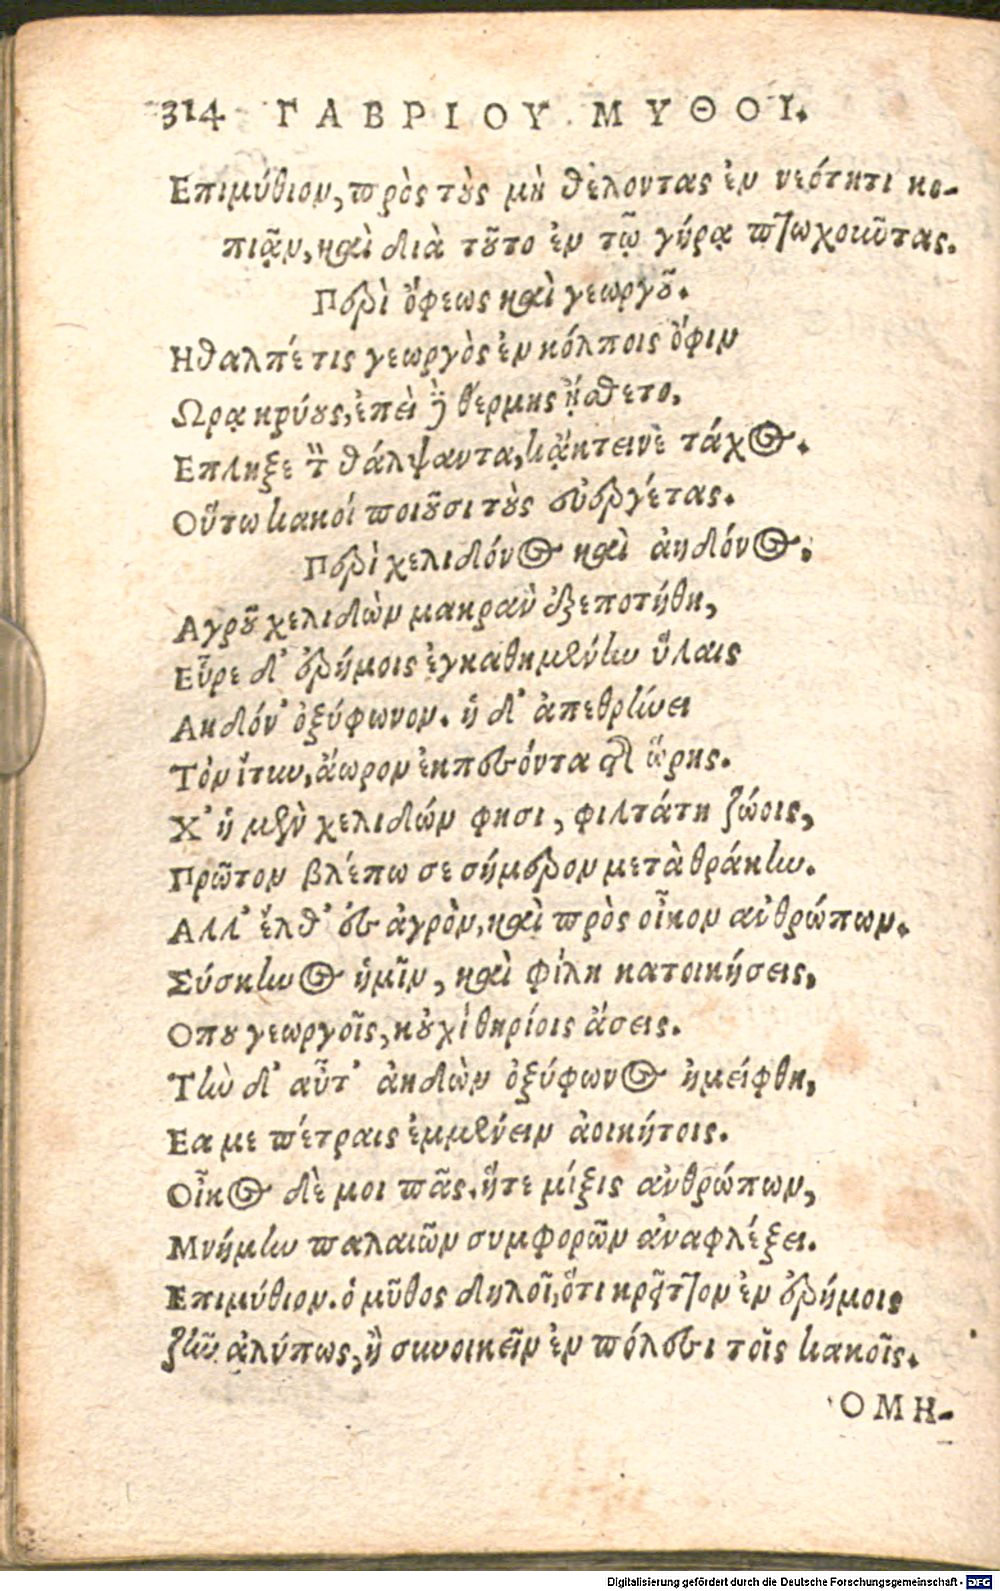 314 ΓΑΒΡΙΟΥ ΜΥΘΟΙ.
Επιμύθιον, πρὸς τοὺς μὴ θέλοντας ἐν νεότητι κο-
πιᾷν, καὶ διὰ τοῦτο ἐν τῷ γήρᾳ πτωχοιῶντας.
Περὶ ὄφεως καὶ γεωργοῦ.
Ηθαλπέ τις γεωργὸς ἐν κόλποις ὄφιν
Ωρᾳ κρύους, ἐπεὶ δὲ θέρμης ᾔσθετο,
Επληξε τὸν θάλψαντα, κᾄκτεινὲ τάχος.
Οὕτω κακοί ποιοῦσι τοὺς εὐεργέτας.
Περὶ χελιδόνος καὶ ἀηδόνος.
Αγροῦ χελιδὼν μακρὰν ἐξεποτήθη,
Εὗρε δ' ἐρήμοις ἐγκαθημένην ὕλαις
Αηδόν' ὀξύφωνον. ἡ δ' ἀπεθρήνει
Τὸν ἴτυν, ἄωρον ἐκπεσόντα τῆς ὥρης.
Χ' ἡ μὲν χελιδών φησι, φιλτάτη ζώοις,
Πρῶτον βλέπω σε σήμερον μετὰ θράκην.
Αλλ' ἔλθ' ἐς ἀγρὸν, καὶ πρὸς οἶκον ἀνθρώπων.
Σύσκηνος ἡμῖν, καὶ φίλη κατοικήσεις,
Οπου γεωργοῖς, κοὐχὶ θηρίοις ᾄσεις.
Τὴν δ' αὖτ' ἀηδὼν ὀξύφωνος ἠμείφθη,
Εα με πέτραις ἐμμένειν ἀοικήτοις.
Οἶκος δὲ μοι πᾶς, ἥτε μίξις ἀνθρώπων,
Μνήμην παλαιῶν συμφορῶν ἀναφλέξει.
Επιμύθιον. ὁ μῦθος δηλοῖ, ὅτι κρεῖττον ἐν ἐρήμοις
ζῆν ἀλύπως, ἢ συνοικεῖν ἐν πόλεσι τοῖς κακοῖς.
ΟΜΗ-
Digitalisierung gefördert durch die Deutsche Forschungsgemeinschaft - DFG